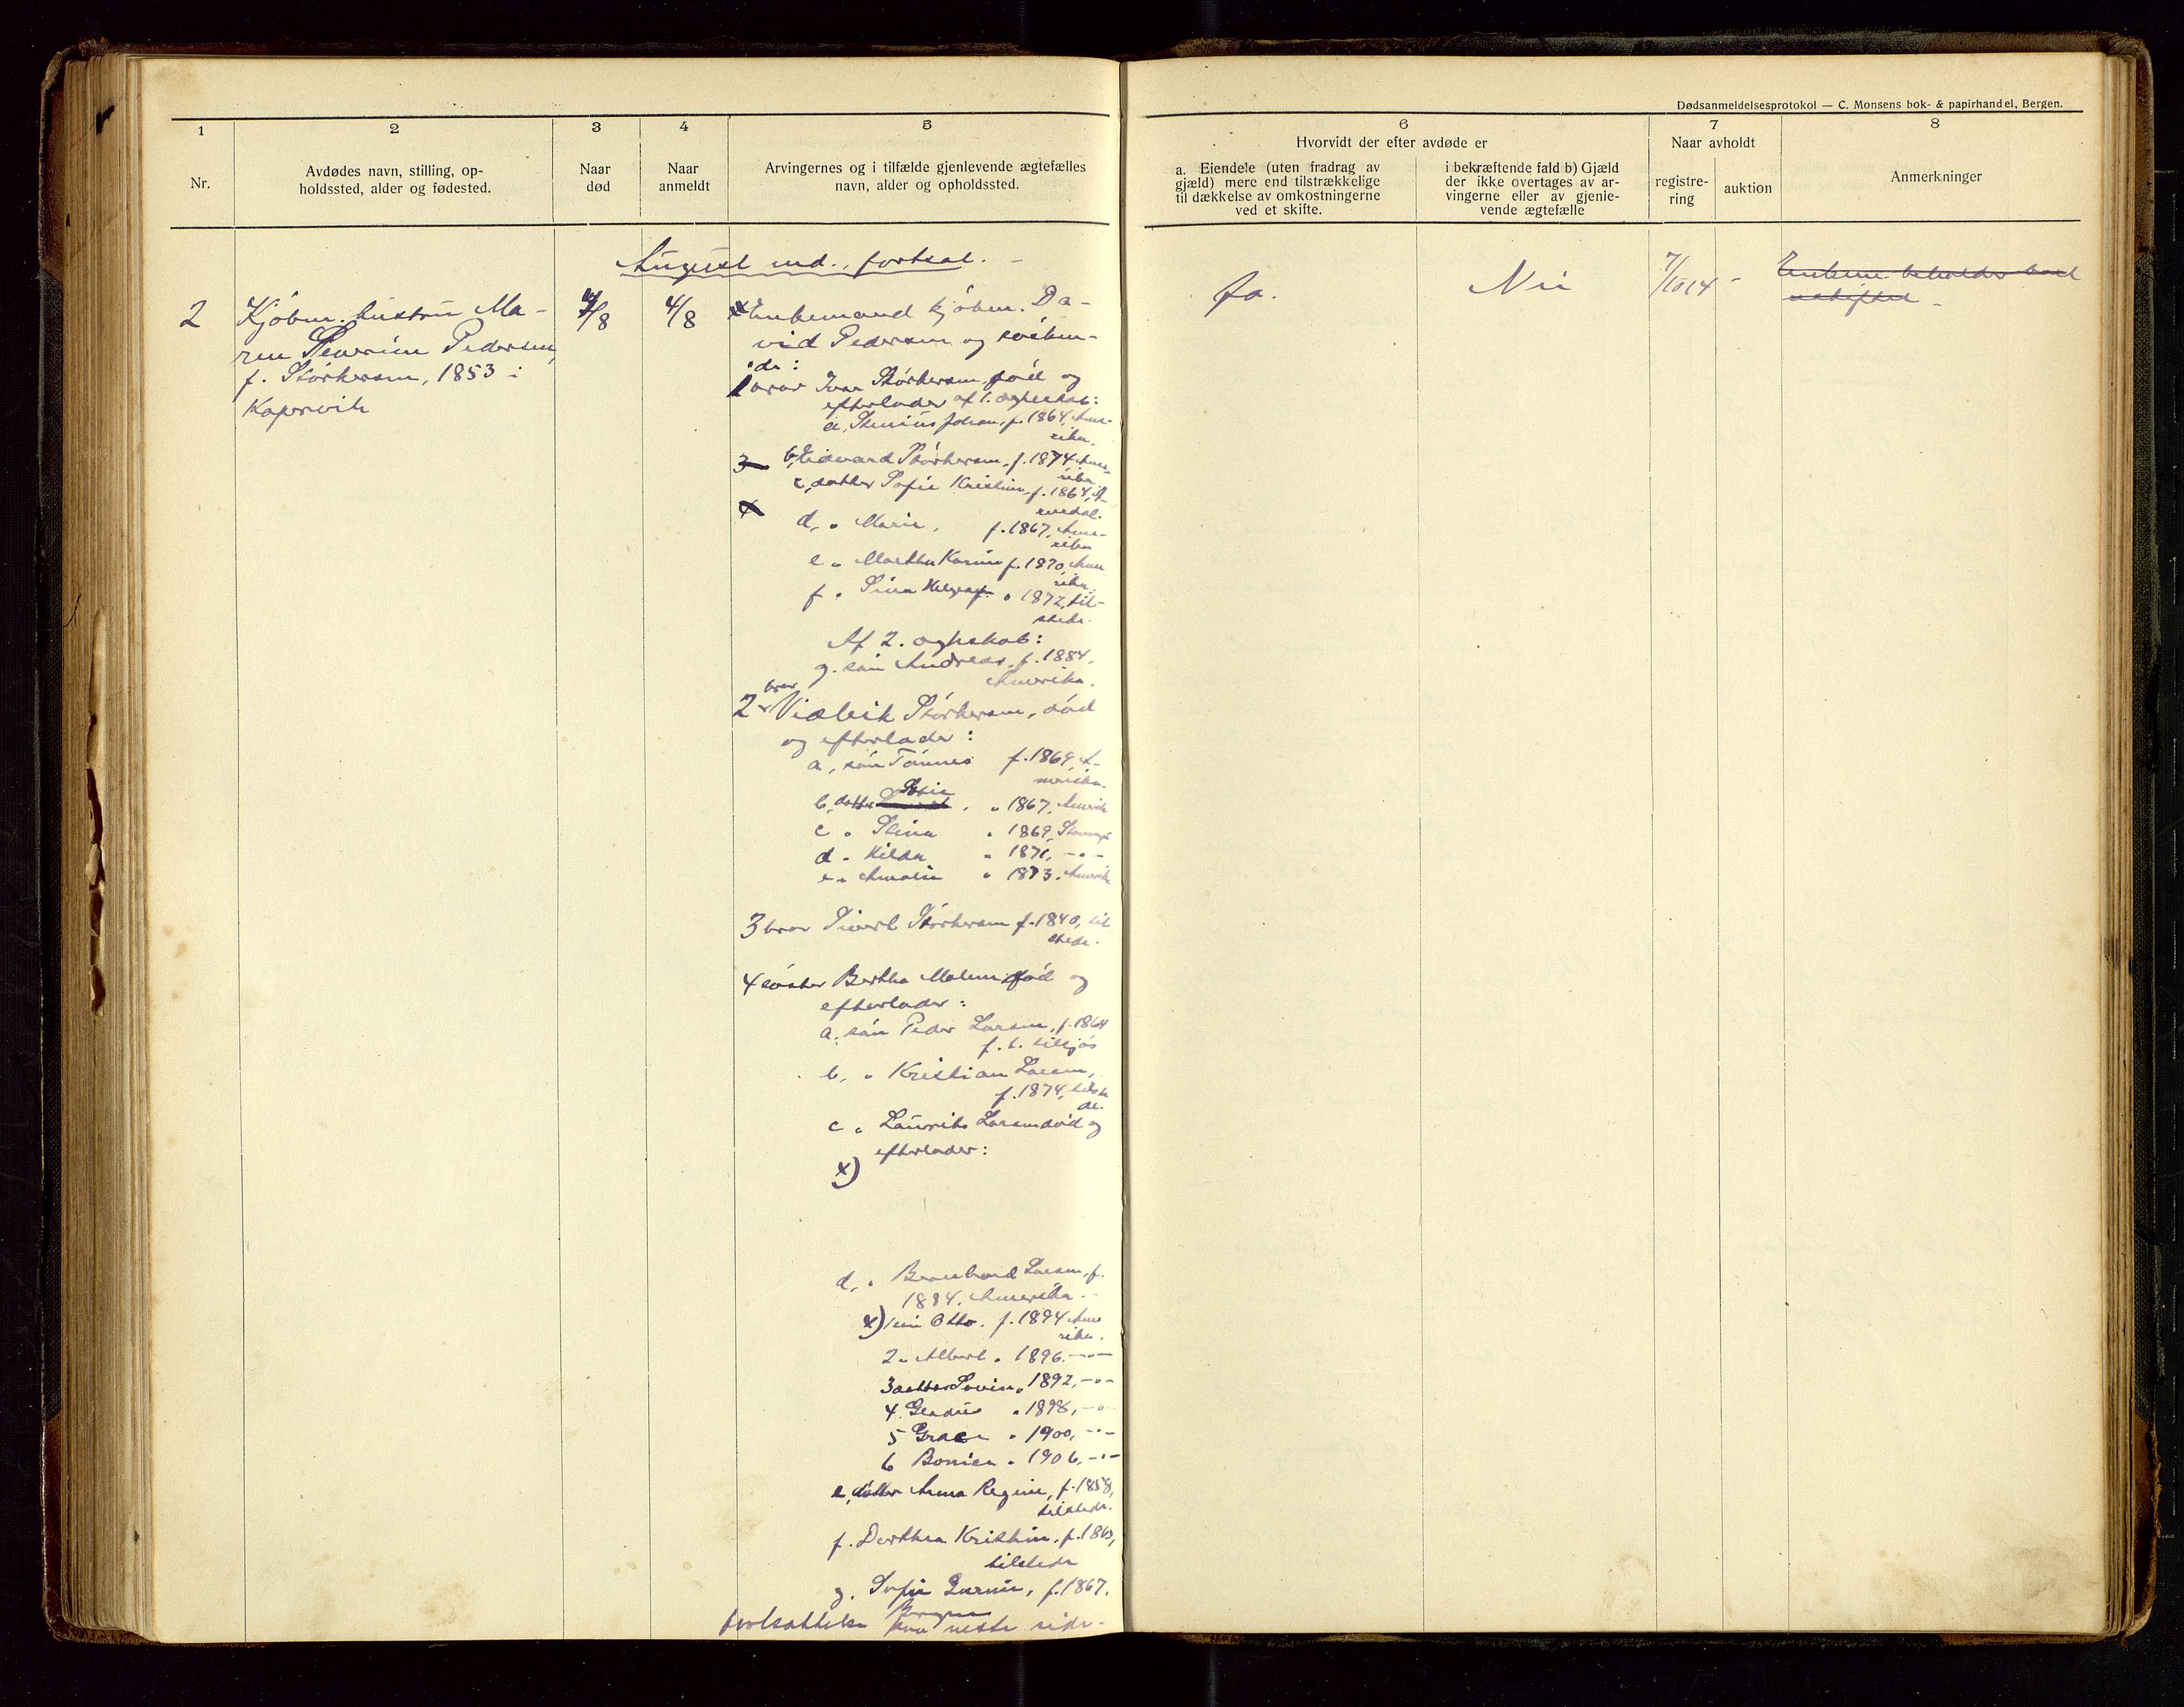 Dødsanmeldelsesprotokol — C. Monsens bok- & papirhandel, Bergen.
1
2
3
4
5
6
7
8
Nr.
Avdødes navn, stilling, op-
holdssted, alder og fødested.
Naar
død
Naar
anmeldt
Arvingernes og i tilfælde gjenlevende ægtefælles
navn, alder og opholdssted.
Hvorvidt der efter avdøde er
a. Eiendele (uten fradrag av
gjæld) mere end tilstrækkelige
til dækkelse av omkostningerne
ved et skifte.
i bekræftende fald b) Gjæld
der ikke overtages av ar-
vingerne eller av gjenle-
vende ægtefælle
Naar avholdt
registre-
ring
auktion
Anmerkninger
August md., fortsat. -
2
Kjøbm. hustru Ma-
ren Severine Pedersen,
f. Størkersen, 1853 i
Kopervik
4/8
4/8
Enkemand kjøbm. Da-
vid Pedersen og søsken-
de:
1 bror Ivar Størkersen, død og
efterlader af 1. ægteskab:
a, Johan, f. 1864, Ame-
rika.
b, Edvard Størkersen, f. 1874 Ame-
rika
c, datter Sofie Kristine, f. 1864, A-
rendal.
d, " Marie, f. 1867, Ame-
rika
e " Martha Karine f. 1870, Ame
rika.
f " Sina Helga " 1872, til-
stede.
Af 2. ægteskab:
g. søn Andreas, f. 1884,
Amerika.
2 bror Vidbik Størkersen, død
og efterlader:
a, søn Tønnes f. 1869, A-
merika.
b, datter Sofie " 1867, Amerika
c " Stina " 1869, Stavanger
d " Hilda " 1871, -"-
e " Amalie " 1873. Amerika
3 bror Sivert Størkersen f. 1840, til
stede.
4 søster Bertha Malene, død og
efterlader:
a. søn Peder Larsen, f. 1864
f. t. tilsjøs
b, " Kristian Larsen,
f. 1874, tilste
de.
c " Laurits Larsen død og
efterlader:
x)
d, " Bernhard Larsen, f.
1884, Amerika.
x) 1 søn Otto. f. 1894 Ame
rika.
2 " Albert " 1896. -"-
3 datter " 1892, -"-
4. Gladus " 1898, -"-
5 Grace " 1900, -"-
6 " 1906, -"-
e, datter Anna Regine, f. 1858,
tilstede.
f. Dorthea Kristine, f. 1863,
tilstede
g. Sofie f. 1867.
Bergen
fortsættelse paa neste side.
Ja.
Nei
7/10 14
-
Enken beholder boet
uskiftet -